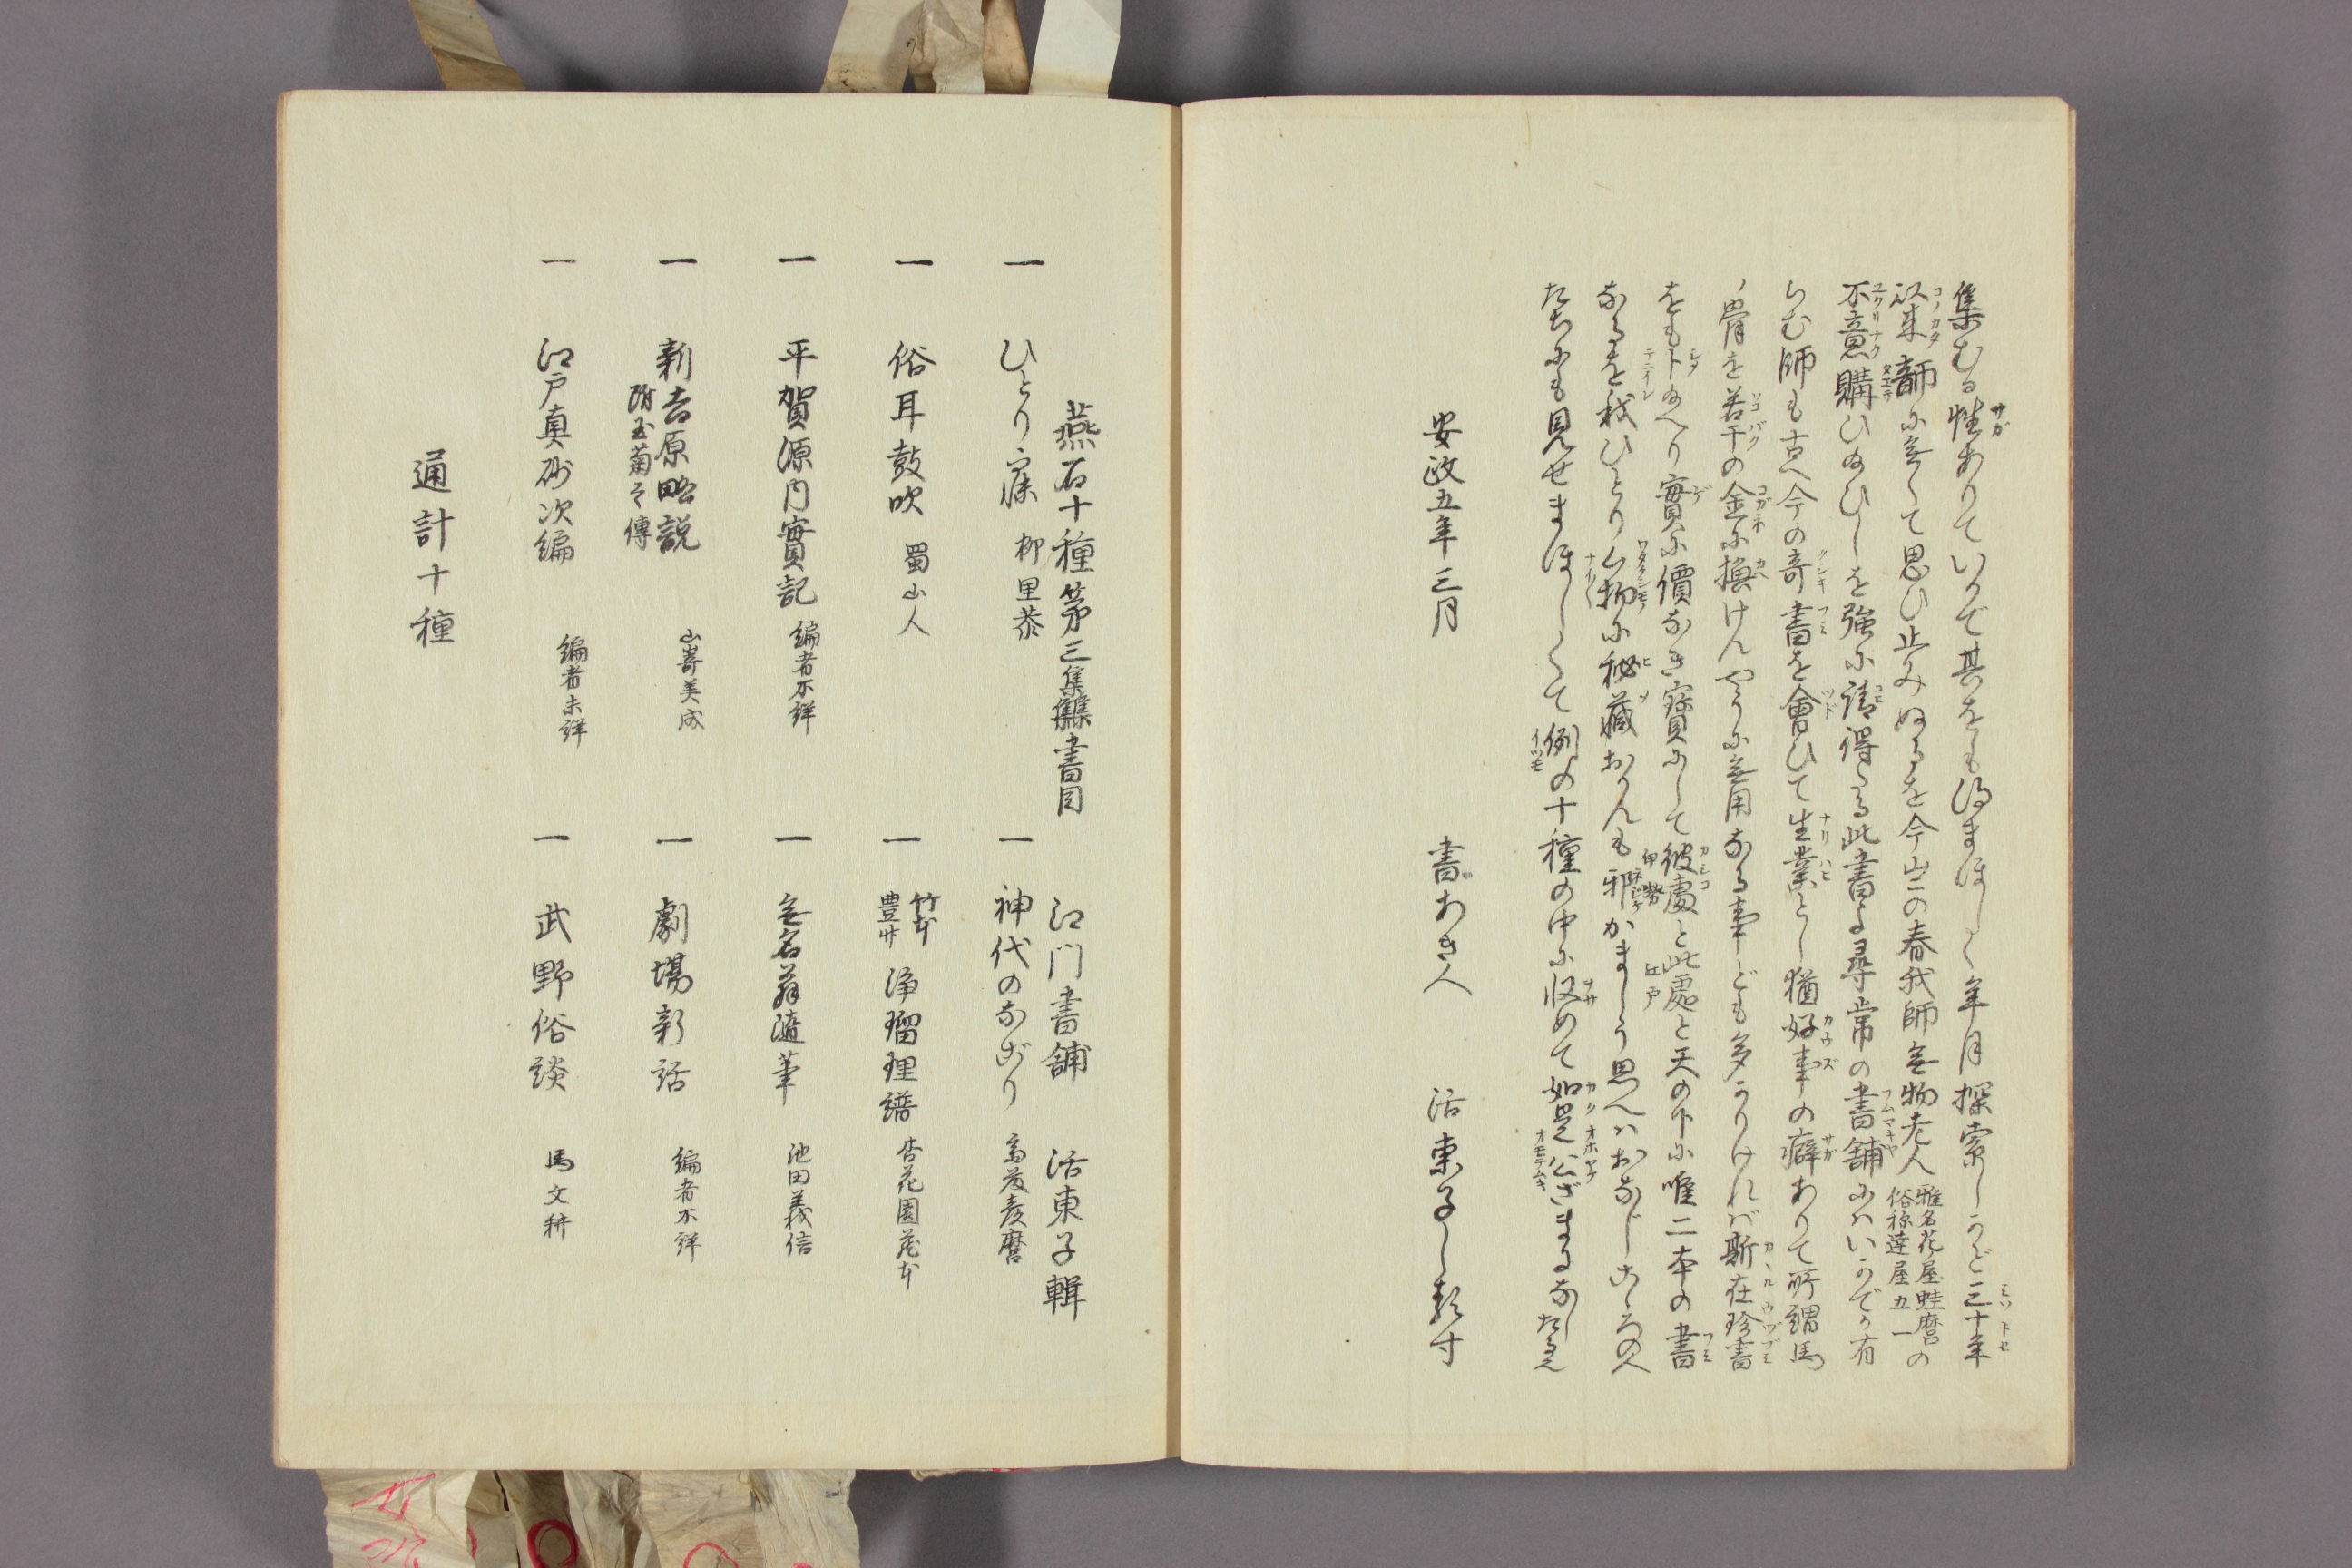 集むる性ありていかで其をも得まほしく年月探索しかど三十年
以来誰に無くて思ひ止みぬるを今山の春我師無物老人雅名花屋蛙麿の俗称達屋五一
不意購ひ給ひしを強に請得たる此書よ尋常の書舗にハいかでか有
らむ師も古へ今の奇書を會ひて生業とし猶好事の癖ありて所謂馬
ノ骨を若干の金に換けんやうに無用なる事ども多かりければ斯在珍書
をも下給へり實に價なき寳にして彼處と此處と天の下に唯二本の書
なるを我ひとりム物に秘藏おかんも邪かましう思へハおなじこゝろの人
たちにも見せまほしくて例の十種の中に収めて如是公ざまるなしたるハ
安政五年三月
書あき人 活東子しるす
燕石十種第三集書目 江門書舗 活東子輯
一 ひとり寐 柳里恭
一 神代のなごり 斎藤彦麿
一 俗耳鼓吹 蜀山人
一 竹本豊竹 浄瑠理譜 杏花園蔵本
一 平賀源内實記 編者不詳
一 無名翁随筆 池田義信
一 新吉原略説 山嵜美成
附玉菊之傳
一 劇場新話 編者不詳
一 江戸真砂次編 編者未詳
一 武野俗談 馬文耕
通計十種